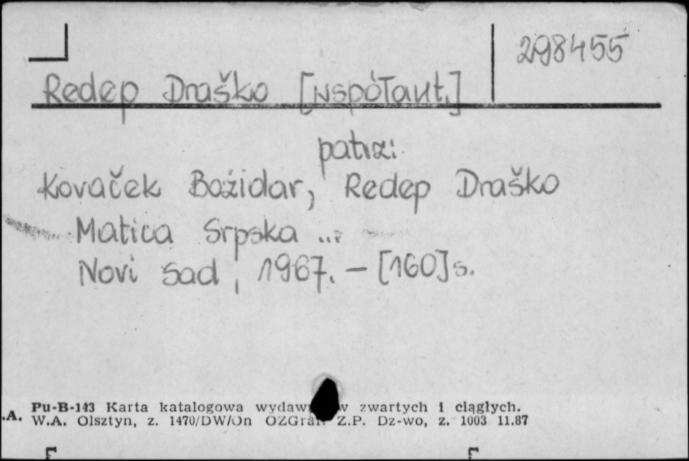 298455
Redep Draško [współaut.]
patrz:
Kovaček Božidar, Redep Draško
Matica Srpska ...
Novi Sad, 1967. - [160] s.
Pu-B-143 Karta katalogowa wydaw w zwartych i ciągłych.
.A. W.A. Olsztyn, z. 1470/DW/On OZGraf Z.P. Dz-wo, z. 1003 11.87